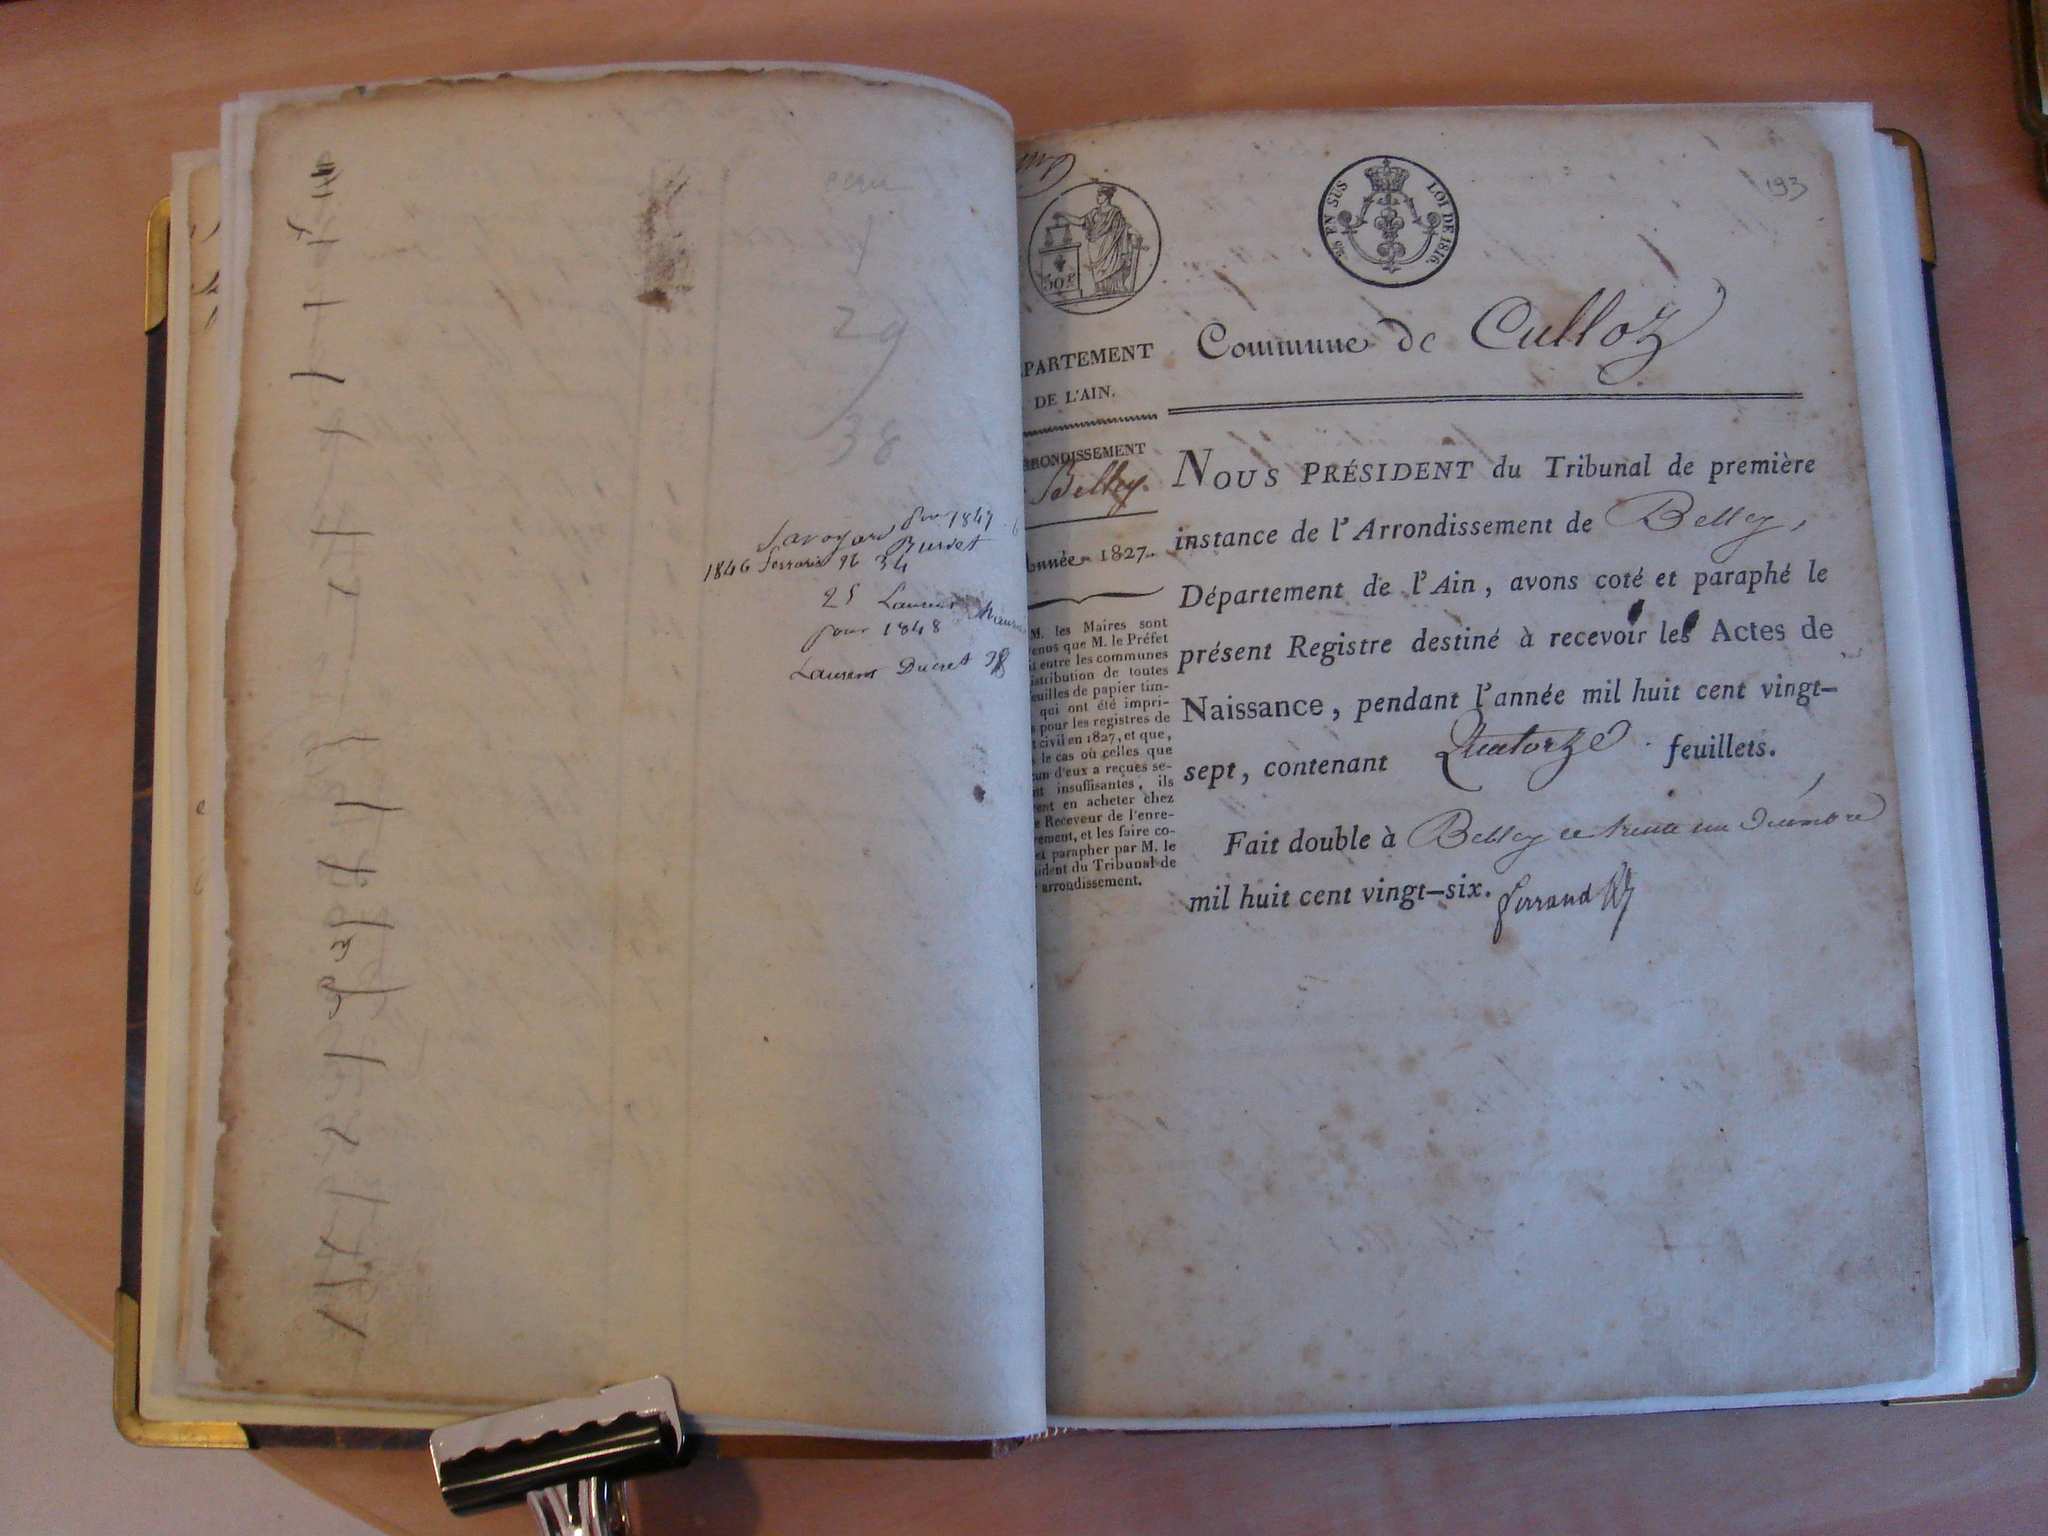 29
38
Savoyard pour 1847
1846 Ferraris 96 34 Burdet
25 Laurent
pour 1848
Laurent Ducret 38
193
50 c
25 EN SUS LOI DE 1816.
PARTEMENT
DE L'AIN.
RRONDISSEMENT
Belley.
Année 1827.
M. les Maires sont
enus que M. le Préfet
i entre les communes
istribution de toutes
euilles de papier tim-
qui ont été impri-
s pour les registres de
t civil en 1827, et que,
le cas où celles que
cun d'eux a reçues se-
nt insuffisantes, ils
ent en acheter chez
e Receveur de l'enre-
rement, et les faire co-
et parapher par M. le
sident du Tribunal de
arrondissement.
Commune de Culloz
NOUS PRÉSIDENT du Tribunal de première
instance de l'Arrondissement de Belley,
Département de l'Ain, avons coté et paraphé le
présent Registre destiné à recevoir les Actes de
Naissance, pendant l'année mil huit cent vingt-
sept, contenant Quatorze feuillets.
Fait double à Belley ce trente un Décembre
mil huit cent vingt-six. Ferrand